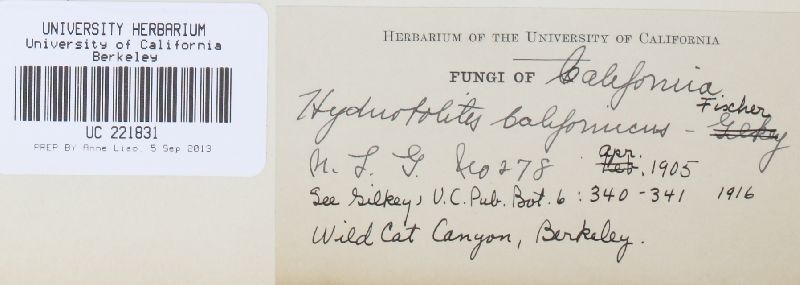 UNIVERSITY HERBARIUM
University of California
Berkeley
UC 221831
PREP BY Anne Liao, 5 Sep 2013
HERBARIUM OF THE UNIVERSITY OF CALIFORNIA
FUNGI OF California
Fischer
Hydnobolites Californicus - Gilkey
apr.
N. L. G. No 278 Feb. 1905
See Gilkey, U.C. Pub. Bot. 6 : 340 - 341 1916
Wild Cat Canyon, Berkeley.